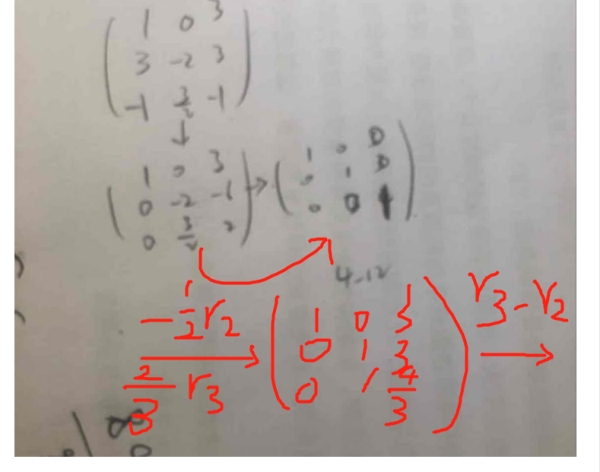 1 0 3
3 -2 3
-1 3/2 -1
↓
1 0 3
0 -2 -6
0 3/2 2
→
1 0 0
0 1 0
0 0 1
4-12
-1/2 r2
2/3 r3
→
1 0 3
0 1 3
0 1 4/3
r3-r2
→